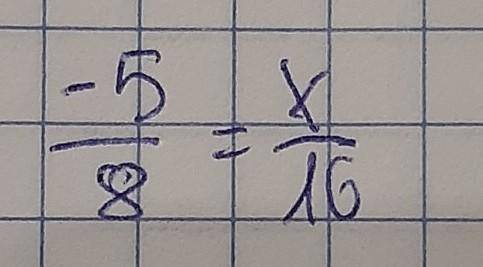 -5/8 = x/16